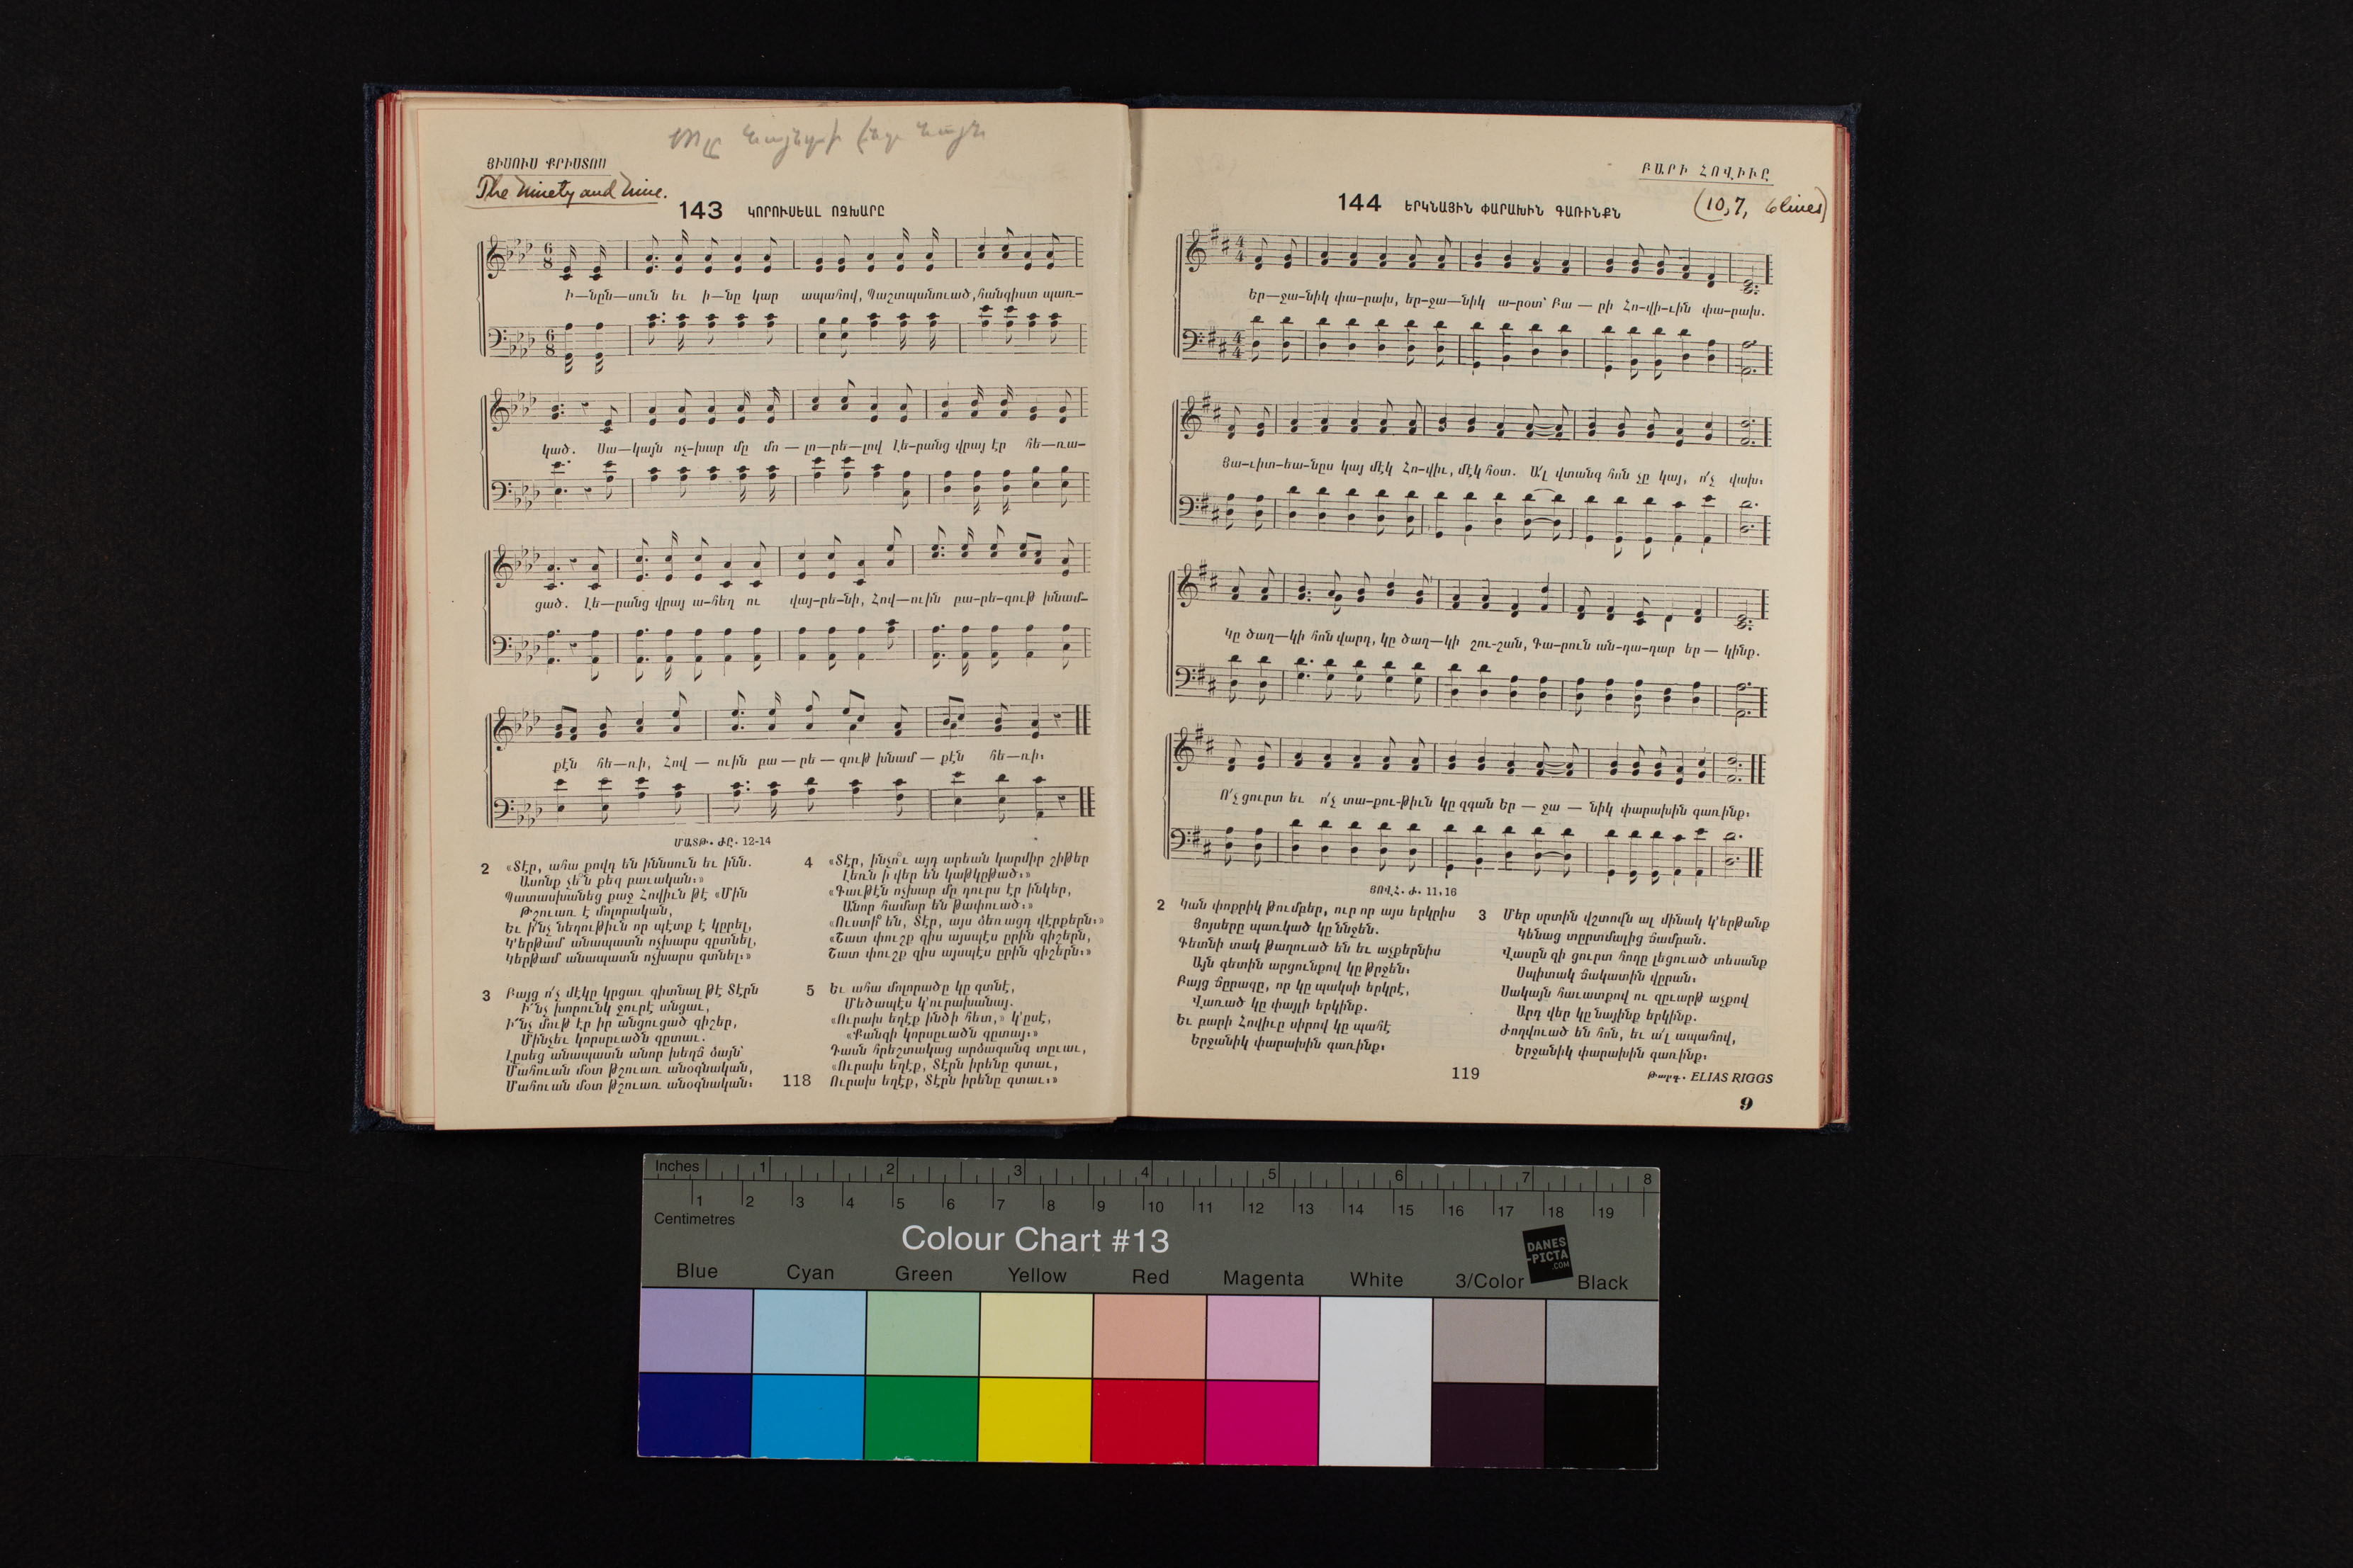 ՅԻՍՈՒՍ ՔՐԻՍՏՈՍ
The Ninety and Nine.
143 ԿՈՐՈՒՍԵԱԼ ՈՉԽԱՐԸ
6 8
Ի—նըն—սուն եւ ի—նը կար ապահով, Պաշտպանուած, հանգիստ պառ—
կած. Սա—կայն ոչ—խար մը մո—լո—րե—լով Լե—րանց վրայ էր հե—ռա—
ցած. Լե—րանց վրայ ա—հեղ ու վայ—րե—նի, Հով—ուին բա—րե—գութ խնամ—
քէն հե—ռի, Հով — ուին բա — րե — գութ խնամ — քէն հե—ռի։
ՄԱՏԹ. ԺԸ. 12-14
2 «Տէր, ահա քովդ են իննսուն եւ ինն.
Ասոնք չե՞ն քեզ բաւական։»
Պատասխանեց քաջ Հովիւն թէ «Մին
Թշուառ է մոլորական,
Եւ ի՛նչ նեղութիւն որ պէտք է կըրել,
Կ'երթամ անապատն ոչխարս գըտնել,
Կերթամ անապատն ոչխարս գտնել։»
3 Բայց ո՛չ մէկը կրցաւ գիտնալ թէ Տէրն
Ի՜նչ խորունկ ջուրէ անցաւ,
Ի՜նչ մութ էր իր անցուցած գիշեր,
Մինչեւ կորսըւածն գըտաւ.
Լըսեց անապատն անոր խեղճ ձայն՝
Մահուան մօտ թշուառ անօգնական,
Մահուան մօտ թշուառ անօգնական։
4 «Տէր, ինչո՞ւ այդ արեան կարմիր շիթեր
Լեռն ի վեր են կաթկըթած։»
«Գաւթէն ոչխար մը դուրս էր ինկեր,
Անոր համար են թափուած։»
«Ուստի՞ են, Տէր, այս ձեռացդ վէրքերն։»
«Շատ փուշք զիս այսպէս ըրին գիշերն,
Շատ փուշք զիս այսպէս ըրին գիշերն։»
5 Եւ ահա մոլորածը կը գտնէ,
Մեծապէս կ'ուրախանայ.
«Ուրախ եղէք ինծի հետ,» կ'ըսէ,
«Քանզի կորսըւածն գըտայ։»
Դասն հրեշտակաց արձագանգ տըւաւ,
«Ուրախ եղէք, Տէրն իրենը գտաւ,
Ուրախ եղէք, Տէրն իրենը գտաւ։»
118
ԲԱՐԻ ՀՈՎԻՒԸ
144 ԵՐԿՆԱՅԻՆ ՓԱՐԱԽԻՆ ԳԱՌԻՆՔՆ
(10,7, 6 lines)
4 4
Եր—ջա—նիկ փա—րախ, եր—ջա—նիկ ա—րօտ՝ Բա — րի Հո—վի—ւին փա—րախ.
Յա—ւիտ—եա—նըս կայ մէկ Հո—վիւ, մէկ հօտ. Ա՛լ վտանգ հոն չը կայ, ո՛չ վախ։
Կը ծաղ—կի հոն վարդ, կը ծաղ—կի շու—շան, Գա—րուն ան—դա—դար եր — կինք.
Ո՛չ ցուրտ եւ ո՛չ տա—քու—թիւն կը զգան Եր — ջա — նիկ փարախին գառինք։
ՅՈՎՀ. Ժ. 11, 16
2 Կան փոքրիկ թումբեր, ուր որ այս երկրիս
Յոյսերը պառկած կը ննջեն.
Գետնի տակ թաղուած են եւ աչքերնիս
Այն գետին արցունքով կը թրջեն։
Բայց ճըրագը, որ կը պակսի երկրէ,
Վառած կը փայլի երկինք.
Եւ բարի Հովիւը սիրով կը պահէ
Երջանիկ փարախին գառինք։
3 Մեր սրտին վշտովն ալ մինակ կ'երթանք
Կենաց տըրտմալից ճամբան.
Վասըն զի ցուրտ հողը լեցուած տեսանք
Սպիտակ ճակատին վըրան։
Սակայն հաւատքով ու զըւարթ աչքով
Արդ վեր կը նայինք երկինք.
Ժողվուած են հոն, եւ ա՛լ ապահով,
Երջանիկ փարախին գառինք։
Թարգ. ELIAS RIGGS
119
9
Inches 1 2 3 4 5 6 7 8
1 2 3 4 5 6 7 8 9 10 11 12 13 14 15 16 17 18 19
Centimetres
Colour Chart #13
DANES
-PICTA
.COM
Blue Cyan Green Yellow Red Magenta White 3/Color Black